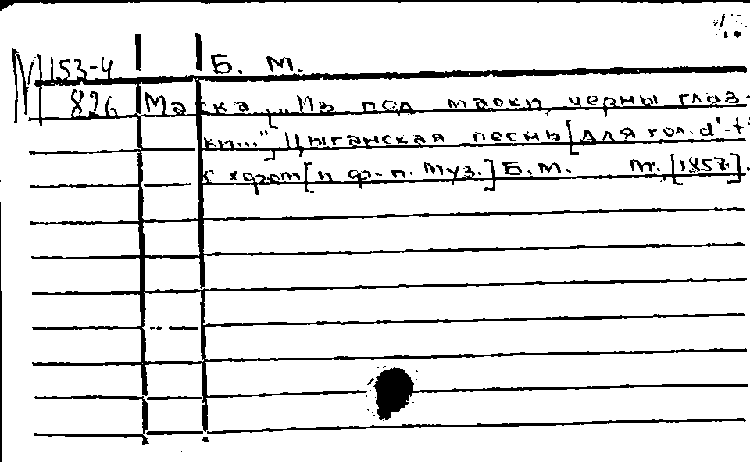 М 153-4 Б. М.
826 Маска. „Из под маски черны глаз-
ки..." Цыганская песнь [для гол. d'-f"
с хором [и ф-п. Муз.] Б. М. М. [1857].